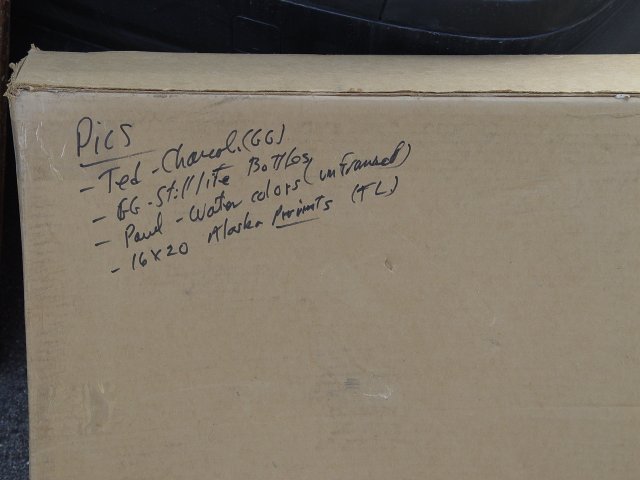 Pics
- Ted - Charcol. (GG)
- GG - Still lite Bottles
- Paul - Water colors (unframed)
- 16x20 Alaska (TL)